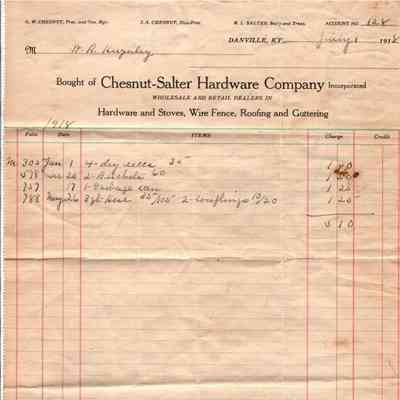 G. W. CHESNUT, Pres. and Gen. Mgr. J. A. CHESNUT, Vice-Pres. R. L. SALTER, Sec'y and Treas. ACCOUNT NO. 128
DANVILLE, KY. July 1 1918
M
Bought of Chesnut-Salter Hardware Company Incorporated
WHOLESALE AND RETAIL DEALERS IN
Hardware and Stoves, Wire Fence, Roofing and Guttering
1918
Folio Date ITEMS Charge Credit
302 Jan 1 4 dry cells 35 1 40
578 26 2 Buckets 60 1 20
757 17 1 Garbage can 1 25
788 May 26 hose 2 Couplings 10/20 1 25
5 10